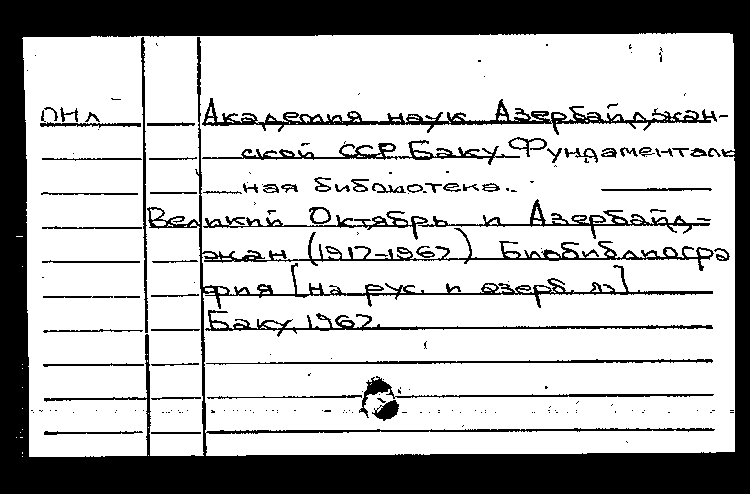 ОНЛ Академия наук Азербайджан-
ской ССР. Баку. Фундаменталь
ная библиотека.
Великий Октябрь и Азербайд-
жан (1917-1967). Биобиблиогра
фия [на рус. и азерб. яз].
Баку, 1967.